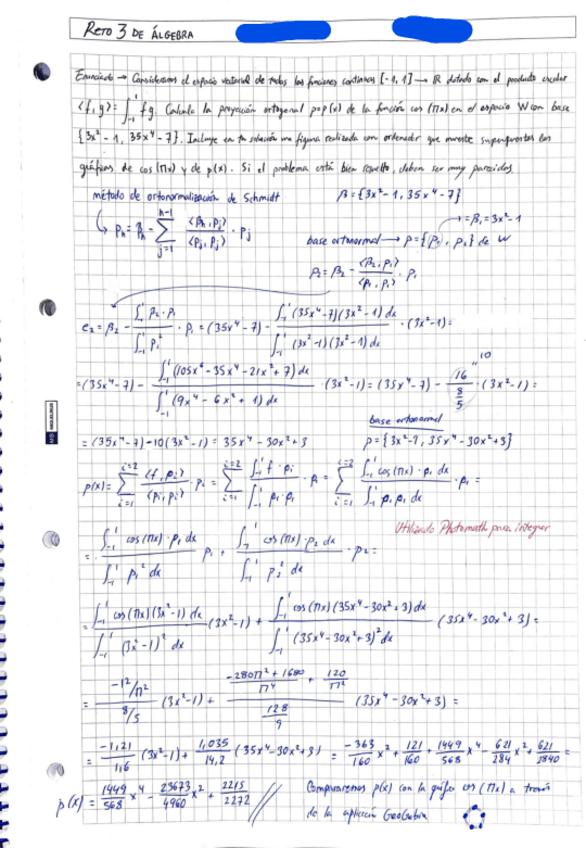 RETO 3 DE ÁLGEBRA
Enunciado → Consideramos el espacio vectorial de todas las funciones continuas [-1, 1] → ℝ dotado con el producto escalar
<f, g> = ∫₋₁¹ fg. Calcula la proyección ortogonal p = p(x) de la función cos(πx) en el espacio W con base
{3x² - 1, 35x⁴ - 7}. Incluye en tu solución una figura realizada con ordenador que muestre superpuestas las
gráficas de cos(πx) y de p(x). Si el problema está bien resuelto, deben ser muy parecidas.
método de ortonormalización de Schmidt β = {3x² - 1, 35x⁴ - 7}
↳ pₙ = βₙ - Σⱼ₌₁ⁿ⁻¹ <βₙ, pⱼ> / <pⱼ, pⱼ> · pⱼ
→ = β₁ = 3x² - 1
base ortonormal → P = {p₁, p₂} de W
p₂ = β₂ - <β₂, p₁> / <p₁, p₁> · p₁
e₂ = β₂ - ∫₋₁¹ β₂ · p₁ / ∫₋₁¹ p₁² · p₁ = (35x⁴ - 7) - ∫₋₁¹ (35x⁴ - 7)(3x² - 1) dx / ∫₋₁¹ (3x² - 1)(3x² - 1) dx · (3x² - 1) =
= (35x⁴ - 7) - ∫₋₁¹ (105x⁶ - 35x⁴ - 21x² + 7) dx / ∫₋₁¹ (9x⁴ - 6x² + 1) dx · (3x² - 1) = (35x⁴ - 7) - 16 / (8/5) · (3x² - 1) =
"10
= (35x⁴ - 7) - 10(3x² - 1) = 35x⁴ - 30x² + 3
base ortonormal
P = {3x² - 1, 35x⁴ - 30x² + 3}
p(x) = Σᵢ₌₁ⁱ⁼² <f, pᵢ> / <pᵢ, pᵢ> · pᵢ = Σᵢ₌₁ⁱ⁼² ∫₋₁¹ f · pᵢ / ∫₋₁¹ pᵢ · pᵢ · pᵢ = Σᵢ₌₁ⁱ⁼² ∫₋₁¹ cos(πx) · pᵢ dx / ∫₋₁¹ pᵢ pᵢ dx · pᵢ =
Utilizando Photomath para integrar
= ∫₋₁¹ cos(πx) · p₁ dx / ∫₋₁¹ p₁² dx p₁ + ∫₋₁¹ cos(πx) · p₂ dx / ∫₋₁¹ p₂² dx · p₂ =
= ∫₋₁¹ cos(πx)(3x² - 1) dx / ∫₋₁¹ (3x² - 1)² dx (3x² - 1) + ∫₋₁¹ cos(πx)(35x⁴ - 30x² + 3) dx / ∫₋₁¹ (35x⁴ - 30x² + 3)² dx (35x⁴ - 30x² + 3) =
= (-12/π²) / (8/5) (3x² - 1) + ((-280π² + 1680) / π⁴ + 120 / π²) / (128/9) (35x⁴ - 30x² + 3) =
= -1,21 / 1,6 (3x² - 1) + 1,035 / 14,2 (35x⁴ - 30x² + 3) = -363/160 x² + 121/160 + 1449/568 x⁴ - 621/284 x² + 621/2840 =
p(x) = 1449/568 x⁴ - 23673/4960 x² + 2215/2272 //
Comparemos p(x) con la gráfica cos(πx) a través
de la aplicación GeoGebra